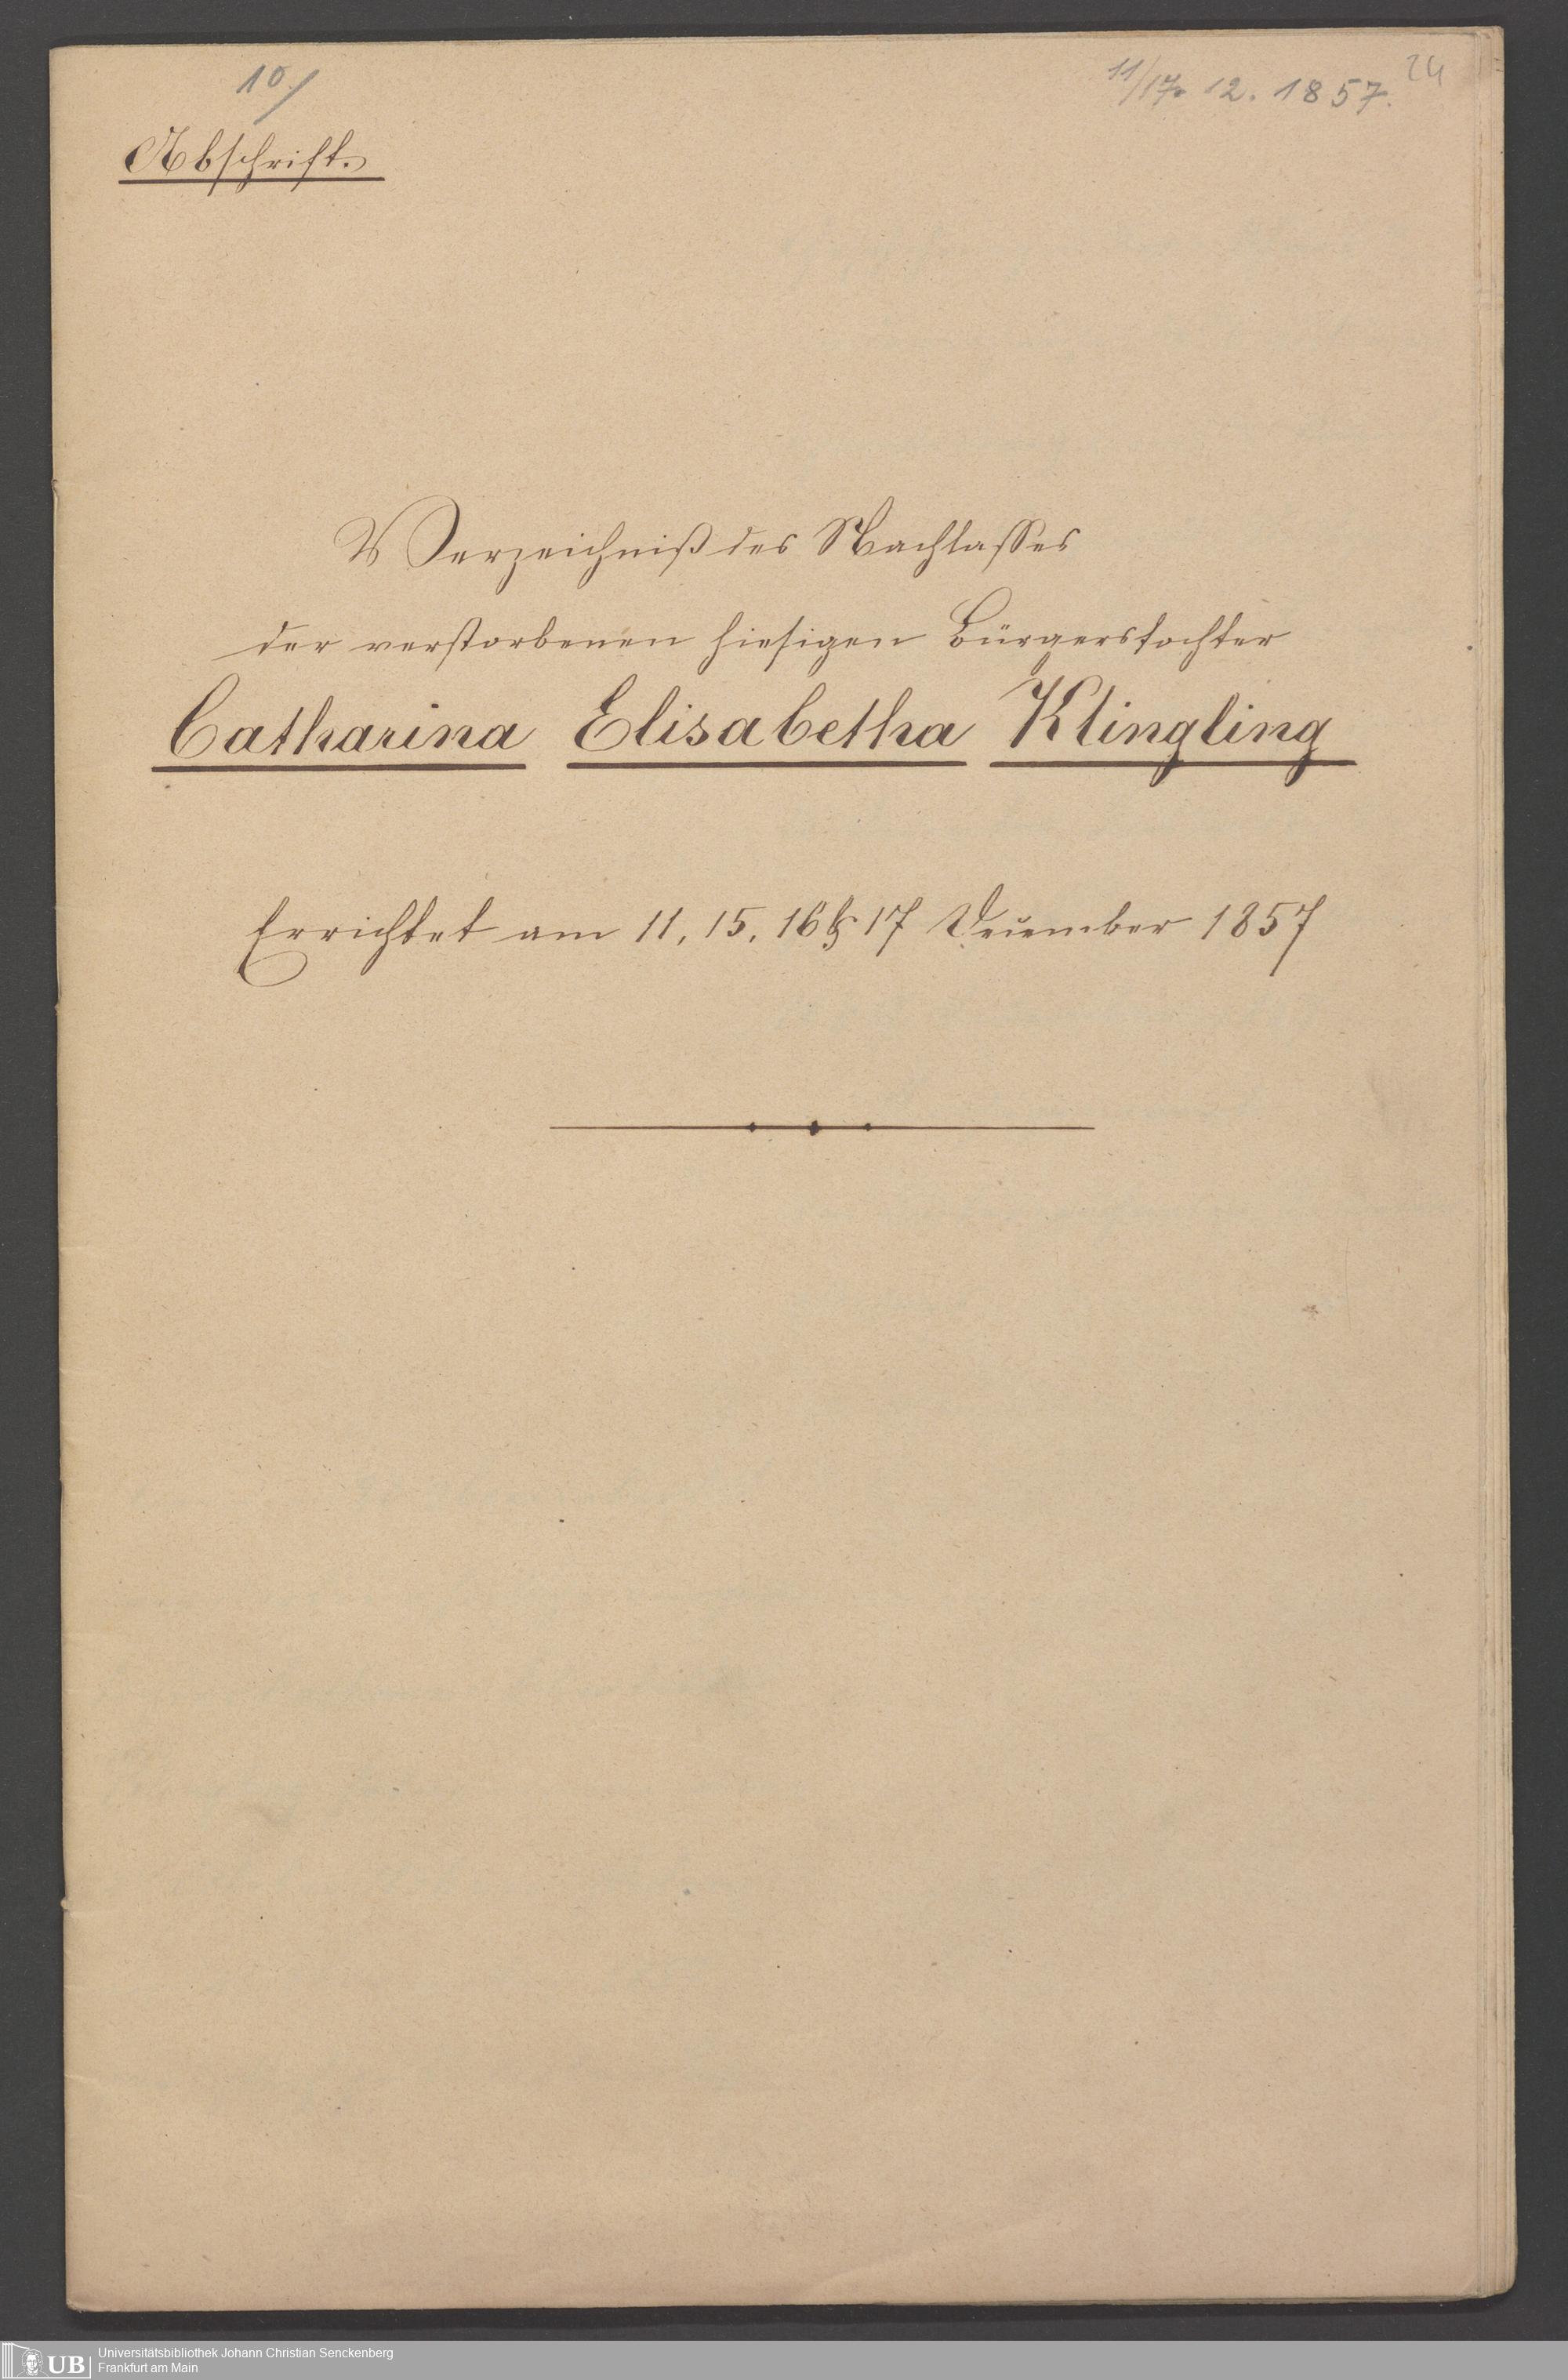 10/
11/17. 12. 1857.
24
Abschrift.
Verzeichniß des Nachlasses
der verstorbenen hiesigen Bürgerstochter
Catharina Elisabetha Klingling
Errichtet am 11, 15, 16 & 17 December 1857
UB
Universitätsbibliothek Johann Christian Senckenberg
Frankfurt am Main